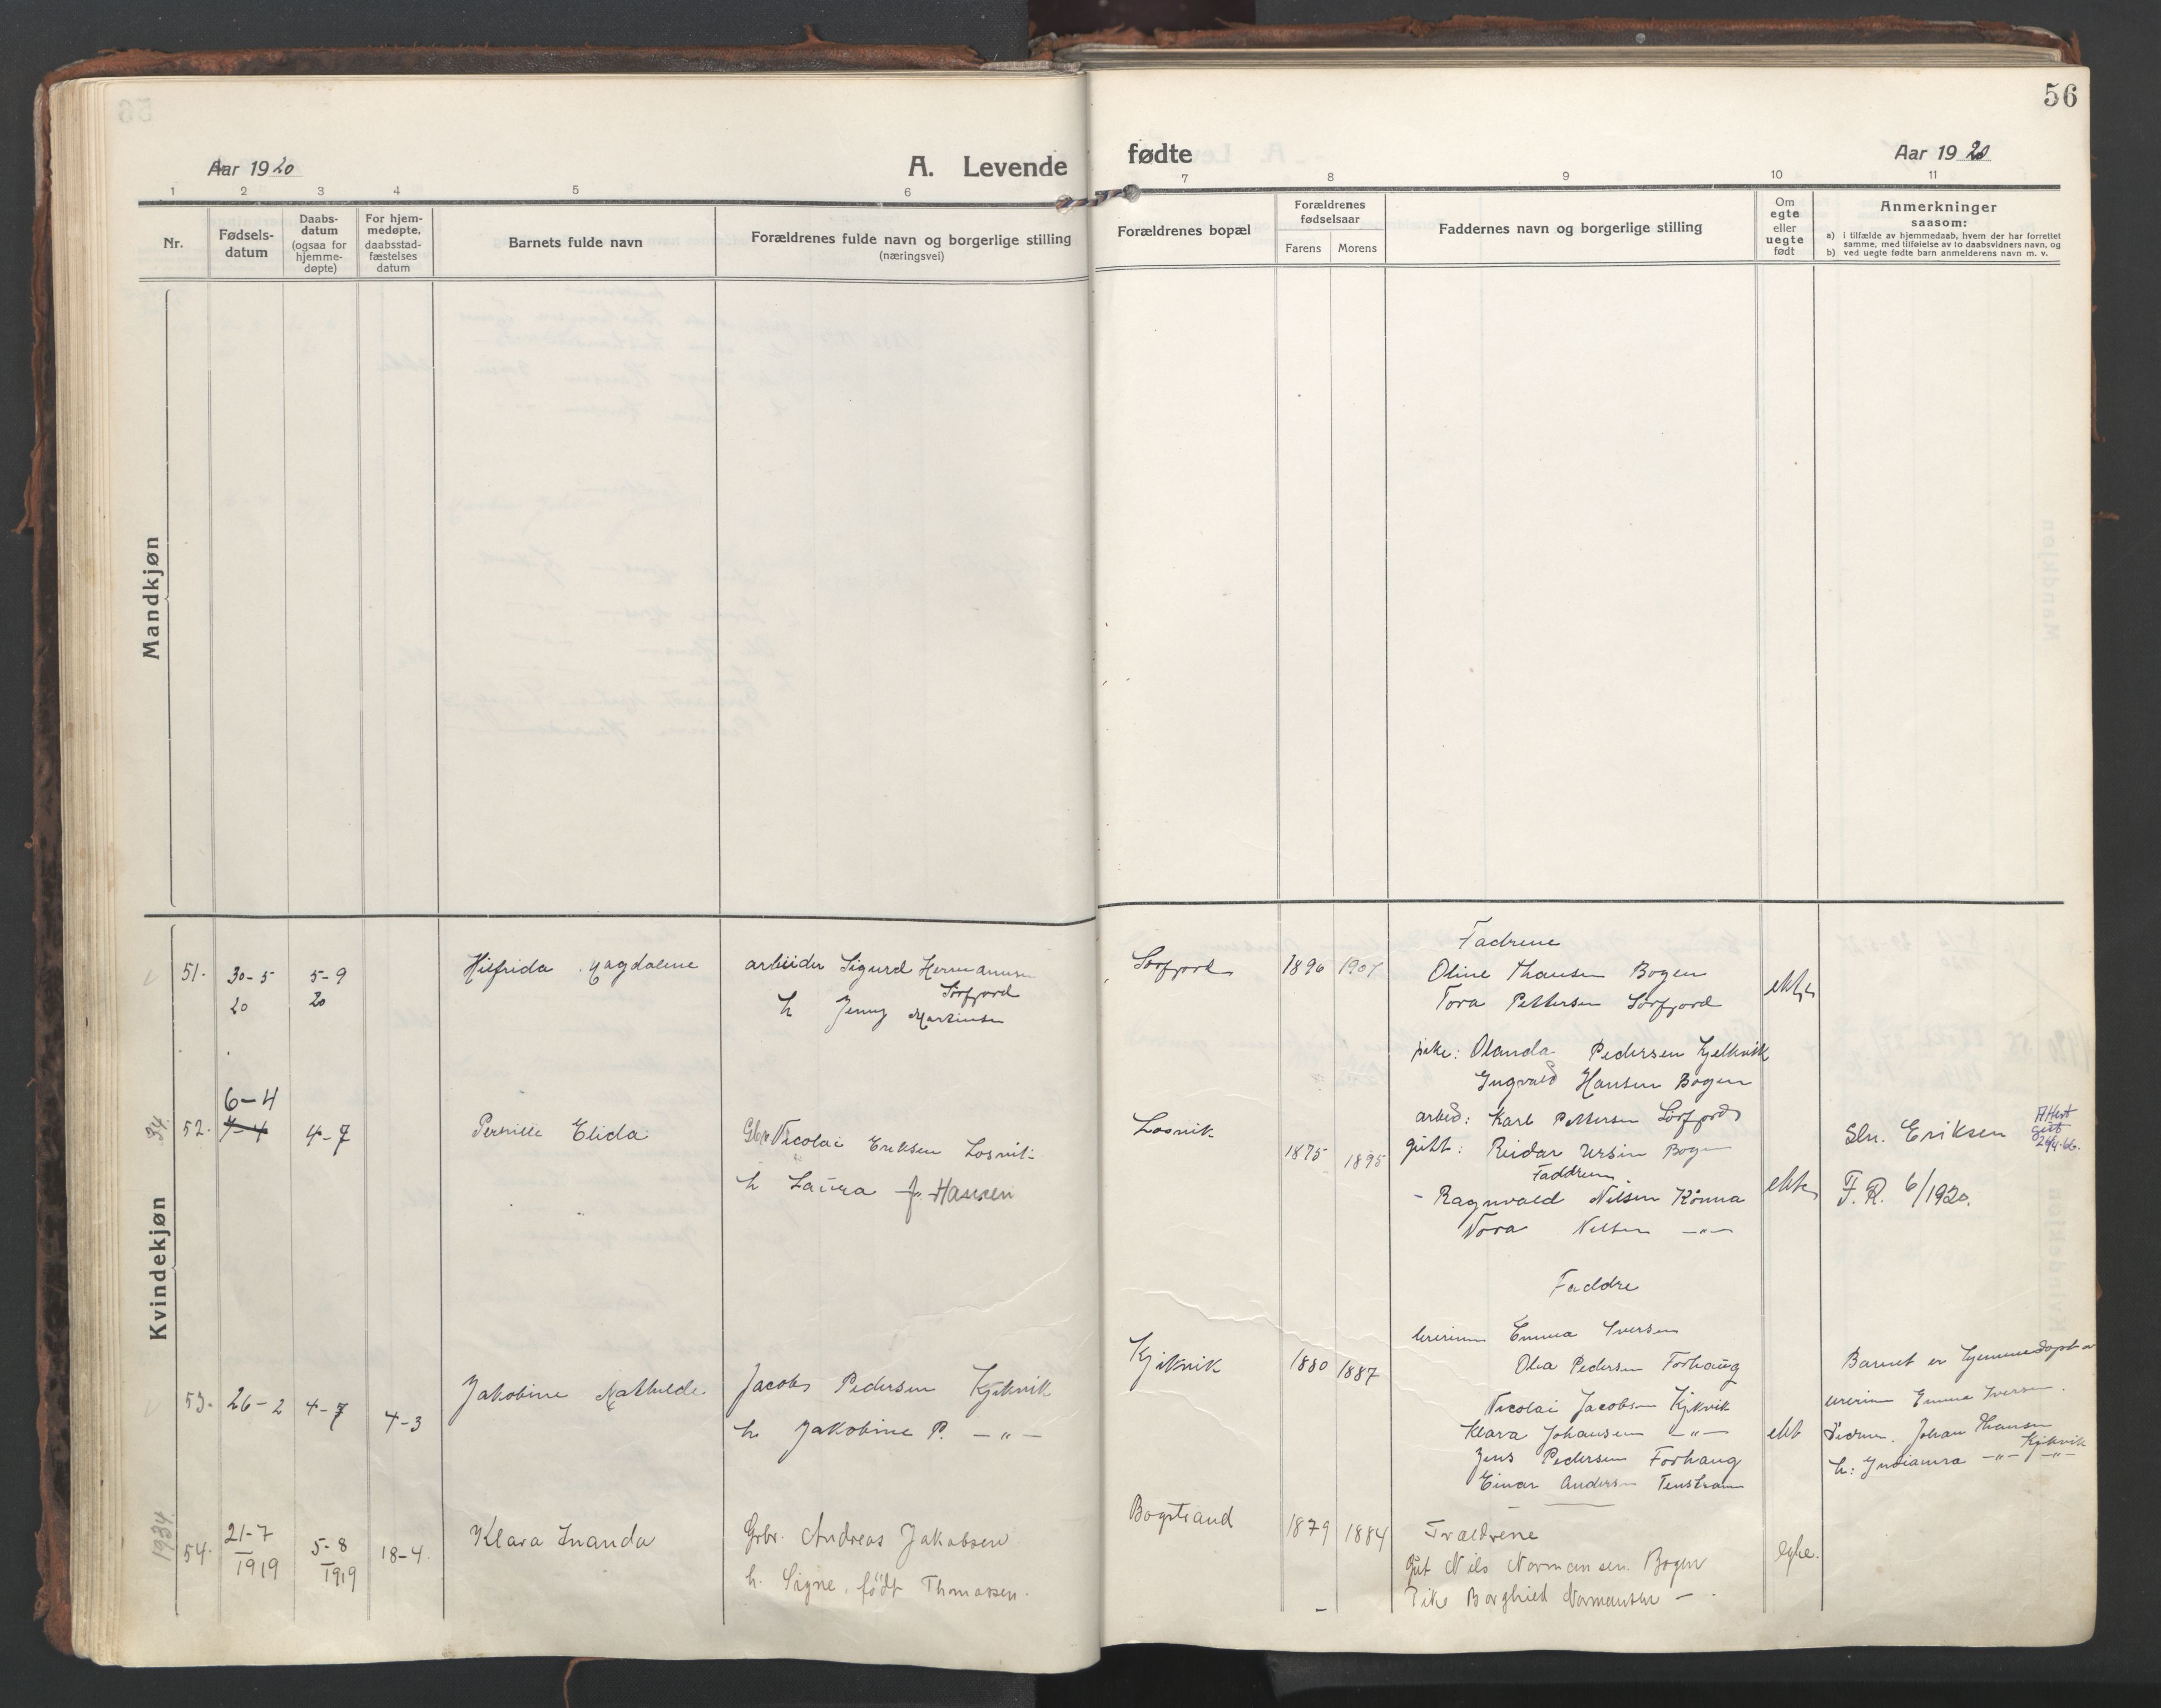 56
Aar 1920
A. Levende fødte
Aar 1920
1 2 3 4 5 6 7 8 9 10 11
Nr.
Fødsels-
datum
Daabs-
datum
(ogsaa for
hjemme-
døpte)
For hjem-
medøpte,
daabsstad-
fæstelses
datum
Barnets fulde navn
Forældrenes fulde navn og borgerlige stilling
(næringsvei)
Forældrenes bopæl
Forældrenes
fødselsaar
Farens Morens
Faddernes navn og borgerlige stilling
Om
egte
eller
uegte
født
Anmerkninger
saasom:
a) i tilfælde av hjemmedaab, hvem der har forrettet
samme, med tilføielse av to daabsvidners navn, og
b) ved uegte fødte barn anmelderens navn m. v.
Mandkjøn
Kvindekjøn
51. 30-5 5-9 Hilfrida Magdalene arbeider Sigurd Hermansen
20 20 Sörfjord
h Jenny Martinsen
Sörfjord 1896 1901
Fadrene
Oline Hansen Bogen
Tora Pettersen Sörfjord
pike: Olanda Pedersen
Ingvald Hansen Bogen
arbeid: Karl Pettersen Sörfjord
gutt: Reidar Ursin Bogen
34.
6-4
52. 7-4 4-7 Pernille Elida Gbr Nicolai Eriksen Losvik
h Laura f. Hansen
Losvik 1875 1895
Faddrene
Ragnvald Nilsen Rönna
Nora Nilsen -"-
ekte
Eriksen
Attest
26/4-66.
F. R. 6/1920.
53. 26-2 4-7 4-3 Jakobine Mathilde Jacob Pedersen Kjikvik
h Jakobine P. -"-
Kjikvik 1880 1887
Faddre
Emma Iversen
Ola Pedersen Forhaug
Nicolai Jacobsen Kjikvik
Klara Johansen -"-
Jens Pedersen Forhaug
Einar Andersen
ekt
Barnet er hjemmedøpt av
Emma Iversen.
Johan Hansen
Kjikvik
h: -"- -"-
1934.
54. 21-7 5-8 18-4 Klara Inanda Grbr. Andreas Jakobsen
1919 1919 h. Signe, født Thomassen.
Bogstrand 1879 1884
Forældrene
Gut Nils Normansen. Bogen
Pike Borghild Normansen -